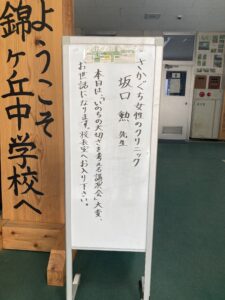 ようこそ
錦ヶ丘中学校へ
さかぐち女性のクリニック
坂口 勲 先生
本日は、「いのちの大切さを考える講演会」大変、
お世話になります。校長室へお入り下さい。